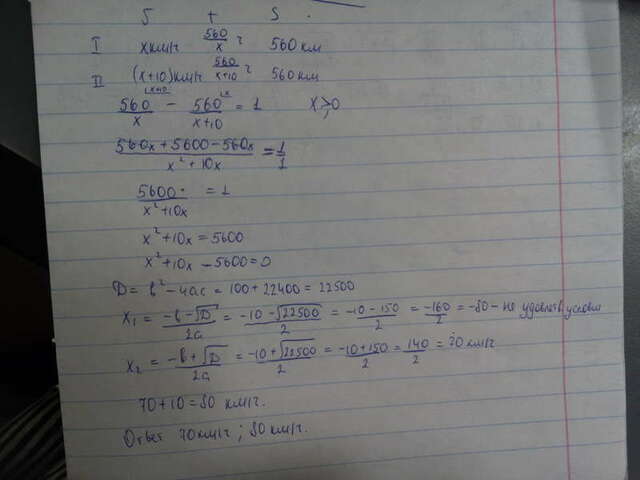 V t S
I x км/ч 560/x ч 560 км
II (x+10) км/ч 560/(x+10) ч 560 км
560/x - 560/(x+10) = 1 x>0
(560x + 5600 - 560x)/(x²+10x) = 1/1
5600/(x²+10x) = 1
x²+10x = 5600
x²+10x - 5600=0
D = b²-4ac = 100 + 22400 = 22500
x₁ = (-b-√D)/2a = (-10-√22500)/2 = (-10-150)/2 = -160/2 = -80 - не удовлетв. услов
x₂ = (-b+√D)/2a = (-10+√22500)/2 = (-10+150)/2 = 140/2 = 70 км/ч
70+10=80 км/ч.
Ответ 70 км/ч ; 80 км/ч.